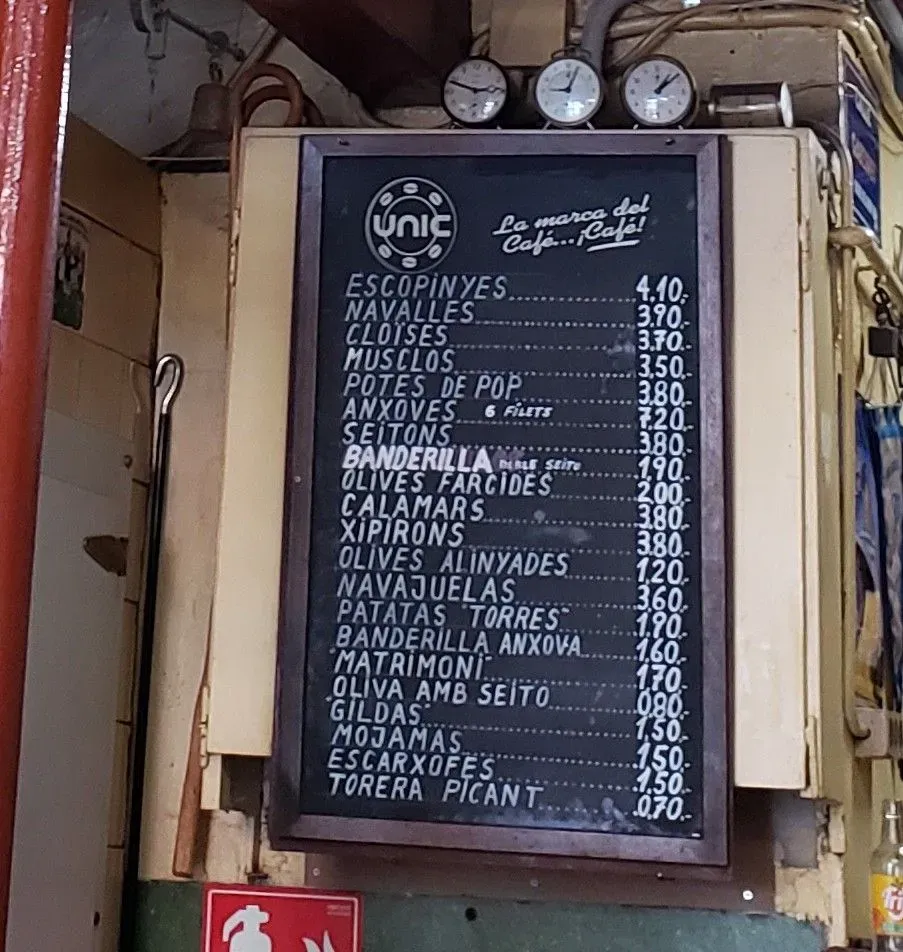 ÚNIC
La marca del
Café...¡Café!
ESCOPINYES 4,10.-
NAVALLES 3,90.-
CLOÏSES 3,70.-
MUSCLOS 3,50.-
POTES DE POP 3,80.-
ANXOVES 6 FILETS 7,20.-
SEITONS 3,80.-
BANDERILLA SEITO 1,90.-
OLIVES FARCIDES 2,00.-
CALAMARS 3,80.-
XIPIRONS 3,80.-
OLIVES ALINYADES 1,20.-
NAVAJUELAS 3,60.-
PATATAS "TORRES" 1,90.-
BANDERILLA ANXOVA 1,60.-
"MATRIMONI" 1,70.-
OLIVA AMB SEITO 0,80.-
"GILDAS" 1,50.-
MOJAMAS 1,50.-
ESCARXOFES 1,50.-
TORERA PICANT 0,70.-